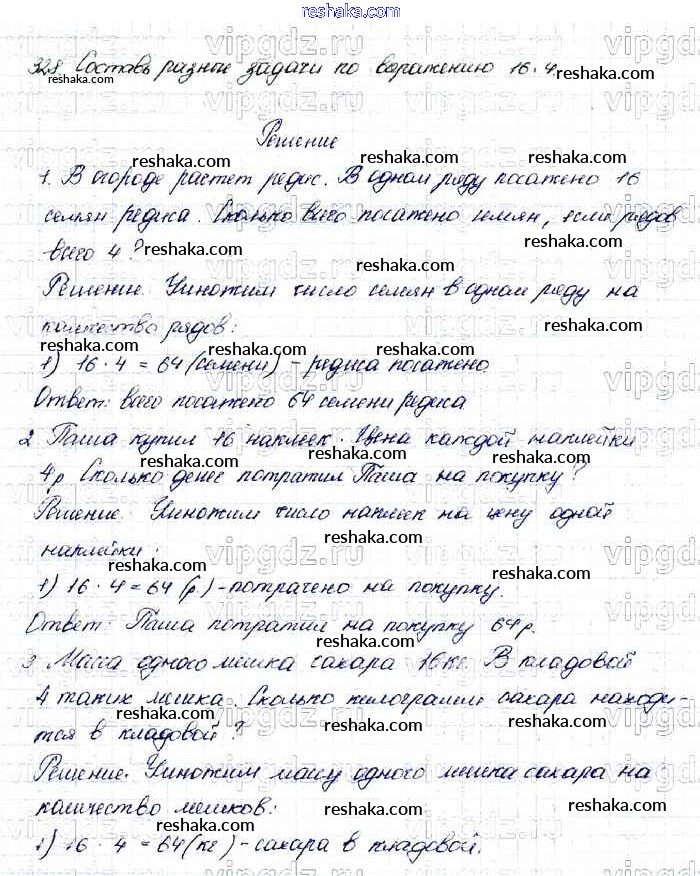 reshaka.com
328 Составь разные задачи по выражению 16·4.
Решение
1. В огороде растет редис. В одном ряду посажено 16
семян редиса. Сколько всего посажено семян, если рядов
всего 4?
Решение. Умножим число семян в одном ряду на
количество рядов:
1) 16·4 = 64 (семени) - редиса посажено.
Ответ: всего посажено 64 семени редиса
2 Паша купил 16 наклеек. Цена каждой наклейки
4р. Сколько денег потратил Паша на покупку?
Решение. Умножим число наклеек на цену одной
наклейки.
1) 16·4 = 64 (р.) - потрачено на покупку.
Ответ: Паша потратил на покупку 64р.
3 Масса одного мешка сахара 16кг. В кладовой
4 таких мешка. Сколько килограмм сахара находи-
тся в кладовой?
Решение. Умножим массу одного мешка сахара на
количество мешков:
1) 16·4 = 64 (кг) - сахара в кладовой.